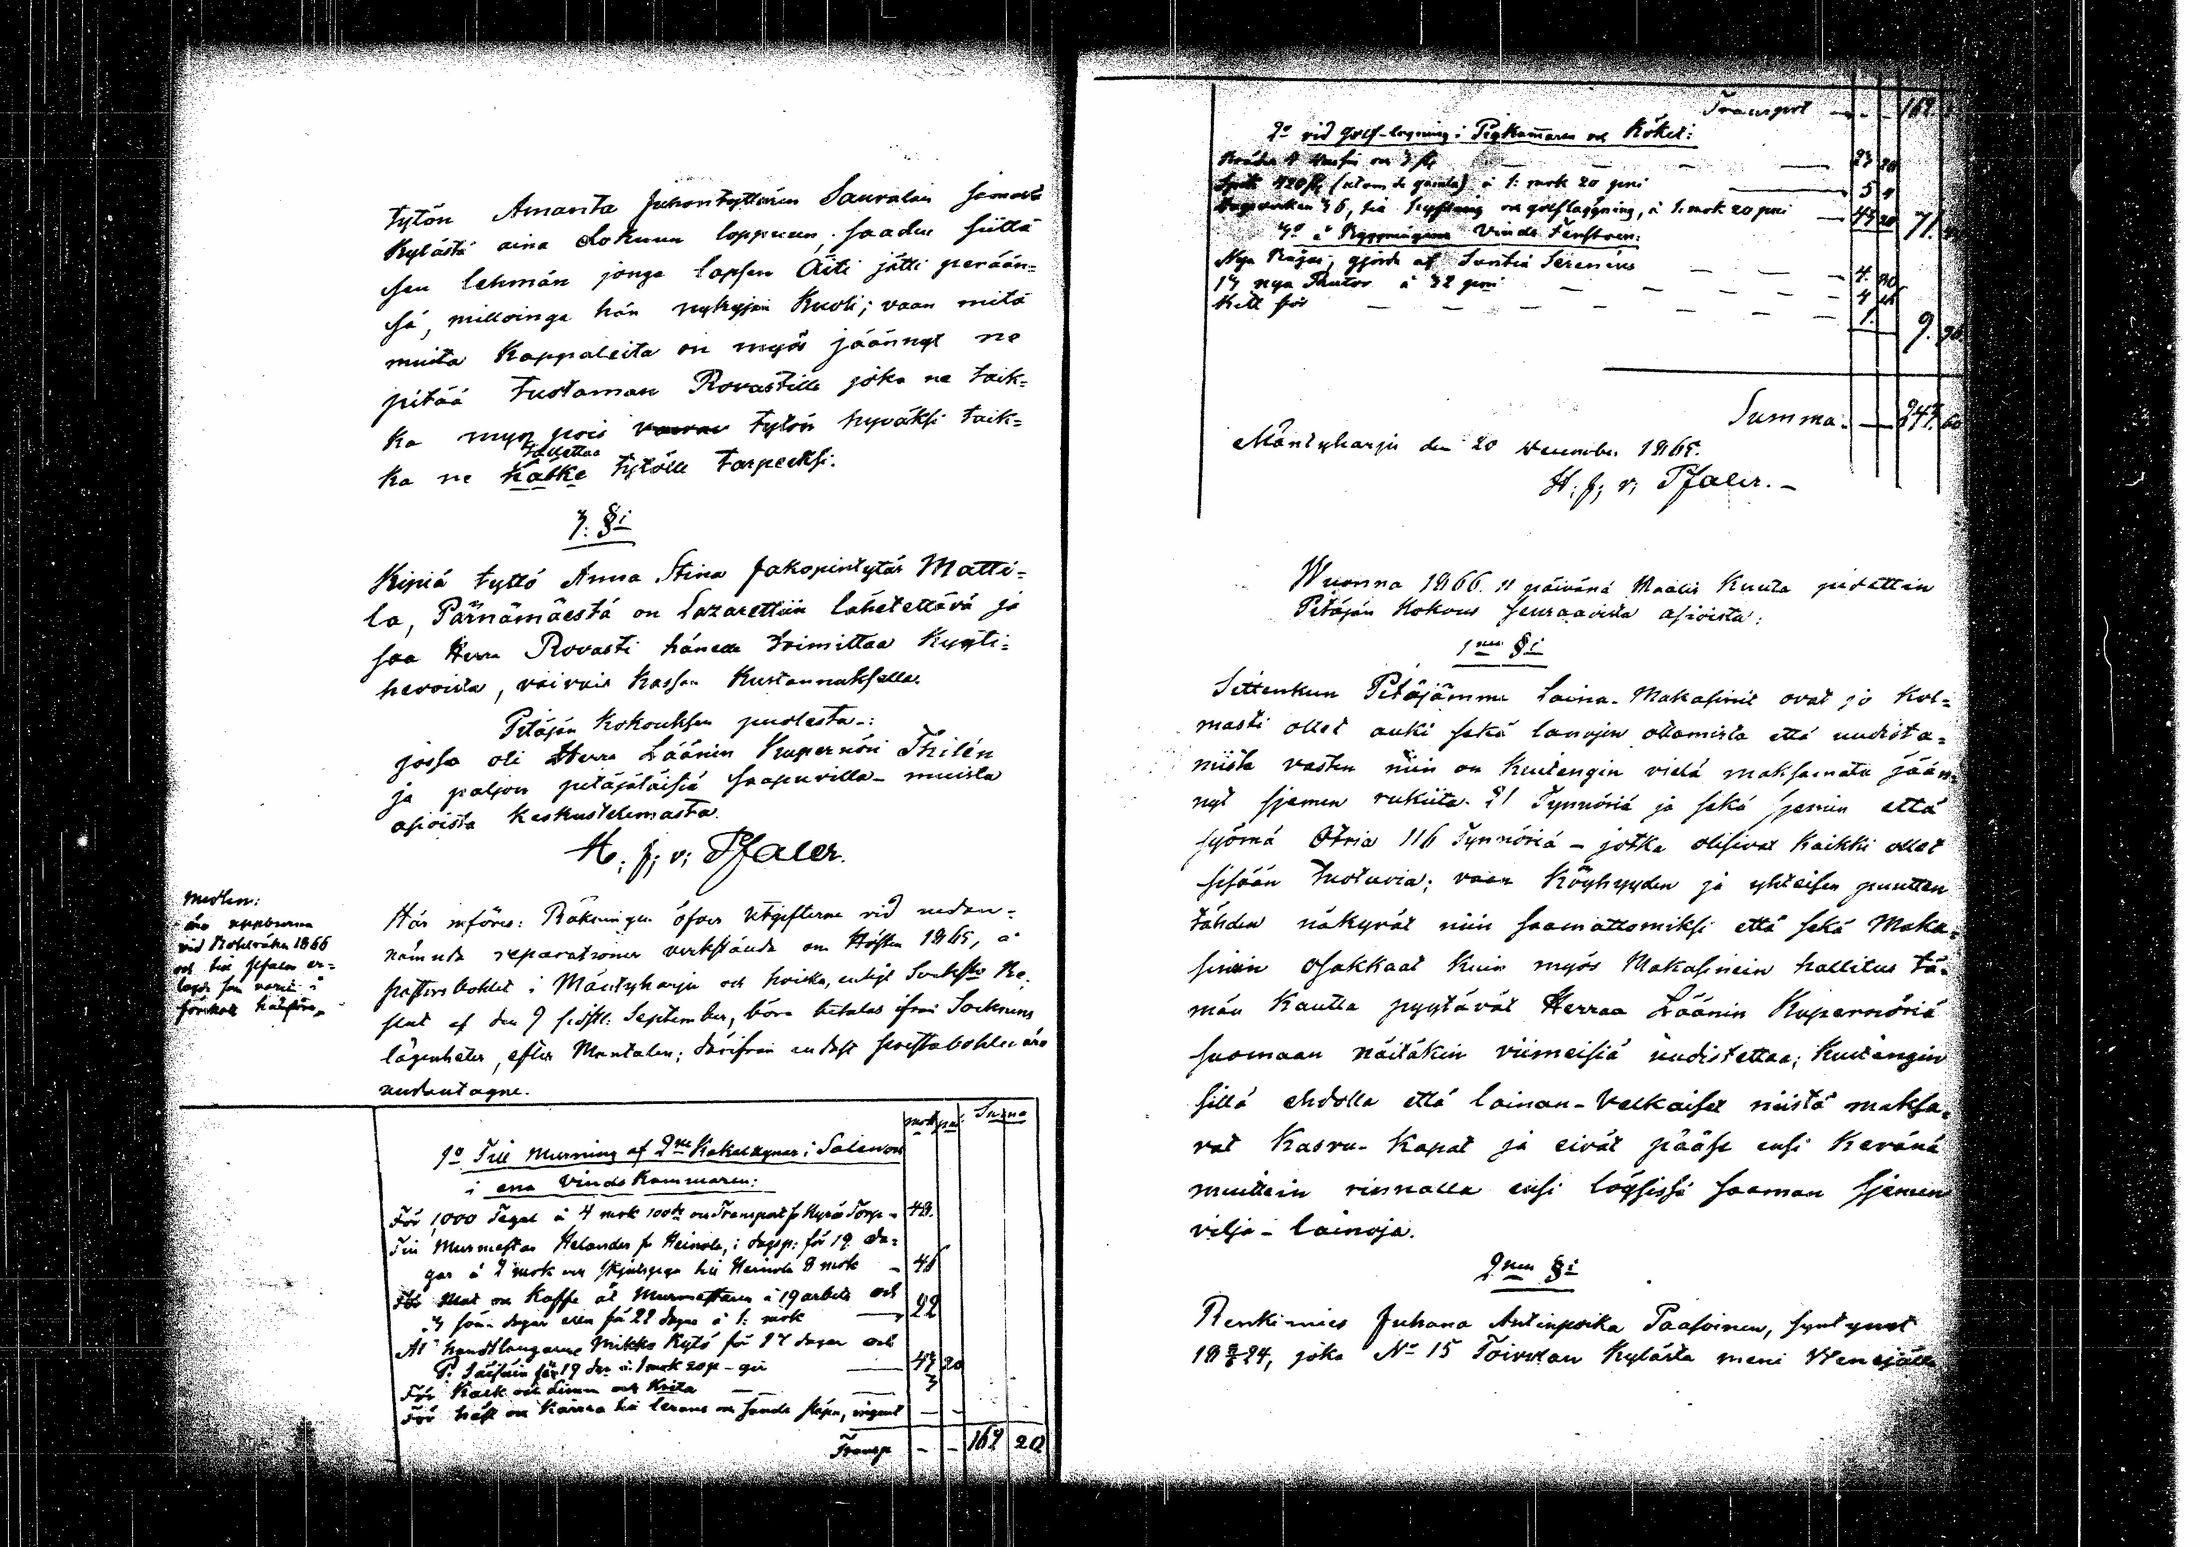 tytön Amanta Juhontyttären Sauralan samasta
kylästä aina Lokuun loppuun, saadus siittä
sen lehmän jonga lapsen Äiti jätti perään=
sä, milloinga hän nykyjän kuoli; vaan mitä
muita kappaleita on myös jäännyt ne
pitää tuotaman Rovastille joka ne taik=
ka myy pois tytön hyväksi taik=
tallettaa
ka ne katke tytölle tarpeeksi.
7. §i
Kipiä tyttö Anna Stina Jakopintytär Matti=
la, Pärnämäestä on Lazarettiin lähetettävä ja
saa Herra Rovasti hänen toimittaa kyyti=
hevoista, vaivais kassan kustannuksella.
Pitäjän kokouksen puolesta:
jossa oli Herra Läänin kupernöri Thilén
ja paljon pitäjäläisiä saapuvilla muista
asioista keskustelemasta.
H. J. v. Pfaler.
Medlen:
äro uppburna
vid 1866
och till
som varit i
Här införes: Räkningen öfver utgifterna vid nedan=
nämnda reparationer verkstälda om Hösten 1865, å
i Mäntyharju och hvilka, enligt Sockne Be=
slut af den 9 sidstl. September, böra betalas ifrån Socknens
lägenheter, efter Mantalen; därifrån endast äro
undantagne.
mrk pi. Summa
1o Till Murning af 2ne Kakelugnar i Salen och
i ena Vindskammaren:
För 1000 Tegel à 4 mok 100de och Transport fr Kyrö Torp 48.
Till Murmestar Helander fr Heinola, i dagsp: för 19 da=
gar à 2 mok och skjutspenga till Heinola 8 mok 46
För Mat och Kaffe åt Murmestaren i 19 arbets och
3 sön- dagar eller för 22 dagar à 1: mok 22
At handtlangarne Mikko Kytö för 17 dagar och
P. för 19 dar à 1 mok 20 p-gi 43 20
För Kalk och Limm och Krita 3
För häst och Kärra till lerans och sands släpn, intet
Transp 162 20
Transport 162.
2o vid golf-lagning i Pigkammaren och Köket:
23 20
Spik 420 st (utom de gamla) à 1: mok 20 pni 5
Dagsverken 36, till och golfläggning, à 1: mok 20 pni 43 20 71.
3o å Vinds Fenstren:
Nya Bågar, gjorda af Serenius 4. 80
13 nya Rutor à 32 pni 4 16
Kitt för 1. 9. 96
Summa 243. 60
Mäntyharju den 20 December 1865.
H. J. v. Pfaler.
Wuonna 1866. 11 päivänä Maalis kuuta pidettiin
Pitäjän Kokous seuraavista asioista:
1nen §i
Sittenkun Pitäjämme Laina-Makasinit ovat jo kol=
masti ollet auki sekä lanojen ottamista että uudista=
mista vasten niin on kuitengin vielä maksamata jään=
nyt sjemen rukiita 21 Tynnöriä ja sekä sjemen että
syömä Otria 116 Tynnöriä – jotka olisivat kaikki ollet
sisään tuotavia; vaan köyhyyden ja yhteisen puutten
tähden näkyvät niin saamattomiksi että sekä Maka=
sinin osakkaat kuin myös Makasinein hallitus tä=
män kautta pyytävät Herraa Läänin Kupernöriä
suomaan näitäkin viimeisiä uudistettaa; kuitengin
sillä ehdolla että lainan-velkaiset niistä maksa=
vat kasvu-kapat ja eivät pääse ensi kevänä
muittein rinnalla ensi löysissä saaman sjemen
vilja-lainoja.
2nen §i
Renkimies Juhana Antinpoika Paasoinen, syntynyt
18 24, joka No 15 Toivolan kylästä meni Wenejälle